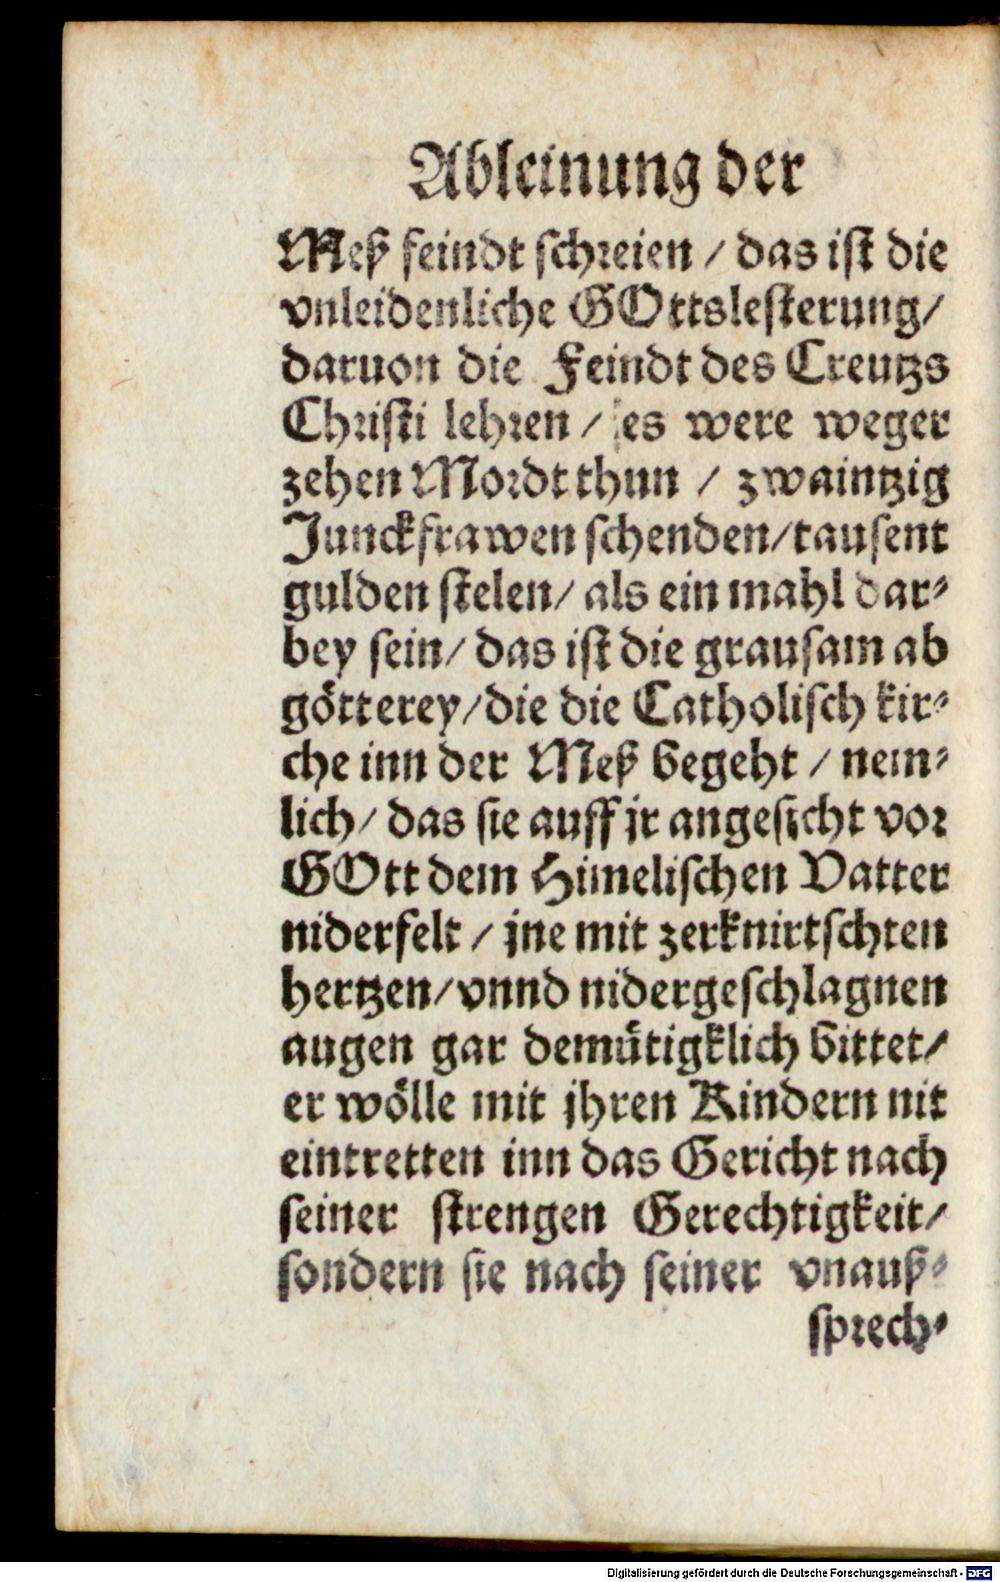 Ableinung der
Meß feindt schreien / das ist die
vnleidenliche GOttslesterung/
daruon die Feindt des Creutzs
Christi lehren / es were weger
zehen Mordt thun / zwaintzig
Junckfrawen schenden/tausent
gulden stelen/ als ein mahl dar-
bey sein/ das ist die grausam ab
götterey/die die Catholisch kir-
che inn der Meß begeht / nem-
lich/ das sie auff jr angesicht vor
GOtt dem Himelischen Vatter
niderfelt / jne mit zerknirtschten
hertzen/vnnd nidergeschlagnen
augen gar demütigklich bittet/
er wölle mit jhren Kindern nit
eintretten inn das Gericht nach
seiner strengen Gerechtigkeit/
sondern sie nach seiner vnauß-
sprech-
Digitalisierung gefördert durch die Deutsche Forschungsgemeinschaft - DFG